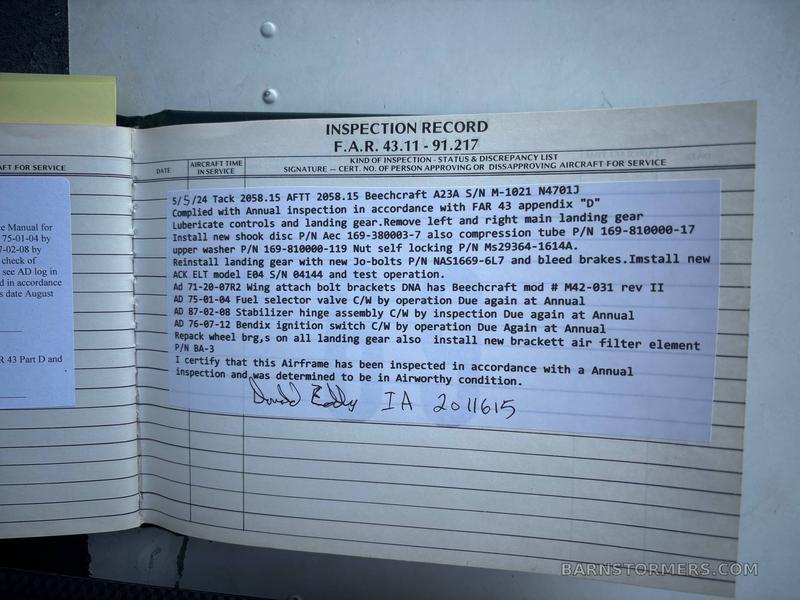 INSPECTION RECORD
F.A.R. 43.11 - 91.217
DATE
AIRCRAFT TIME
IN SERVICE
KIND OF INSPECTION - STATUS & DISCREPANCY LIST
SIGNATURE — CERT. NO. OF PERSON APPROVING OR DISSAPPROVING AIRCRAFT FOR SERVICE
5/5/24 Tack 2058.15 AFTT 2058.15 Beechcraft A23A S/N M-1021 N4701J
Complied with Annual inspection in accordance with FAR 43 appendix "D"
Lubericate controls and landing gear.Remove left and right main landing gear
Install new shook disc P/N Aec 169-380003-7 also compression tube P/N 169-810000-17
upper washer P/N 169-810000-119 Nut self locking P/N Ms29364-1614A.
Reinstall landing gear with new Jo-bolts P/N NAS1669-6L7 and bleed brakes.Imstall new
ACK ELT model E04 S/N 04144 and test operation.
Ad 71-20-07R2 Wing attach bolt brackets DNA has Beechcraft mod # M42-031 rev II
AD 75-01-04 Fuel selector valve C/W by operation Due again at Annual
AD 87-02-08 Stabilizer hinge assembly C/W by inspection Due again at Annual
AD 76-07-12 Bendix ignition switch C/W by operation Due Again at Annual
Repack wheel brg,s on all landing gear also install new brackett air filter element
P/N BA-3
I certify that this Airframe has been inspected in accordance with a Annual
inspection and was determined to be in Airworthy condition.
IA 2011615
AFT FOR SERVICE
ce Manual for
75-01-04 by
7-02-08 by
check of
see AD log in
d in accordance
s date August
R 43 Part D and
BARNSTORMERS.COM